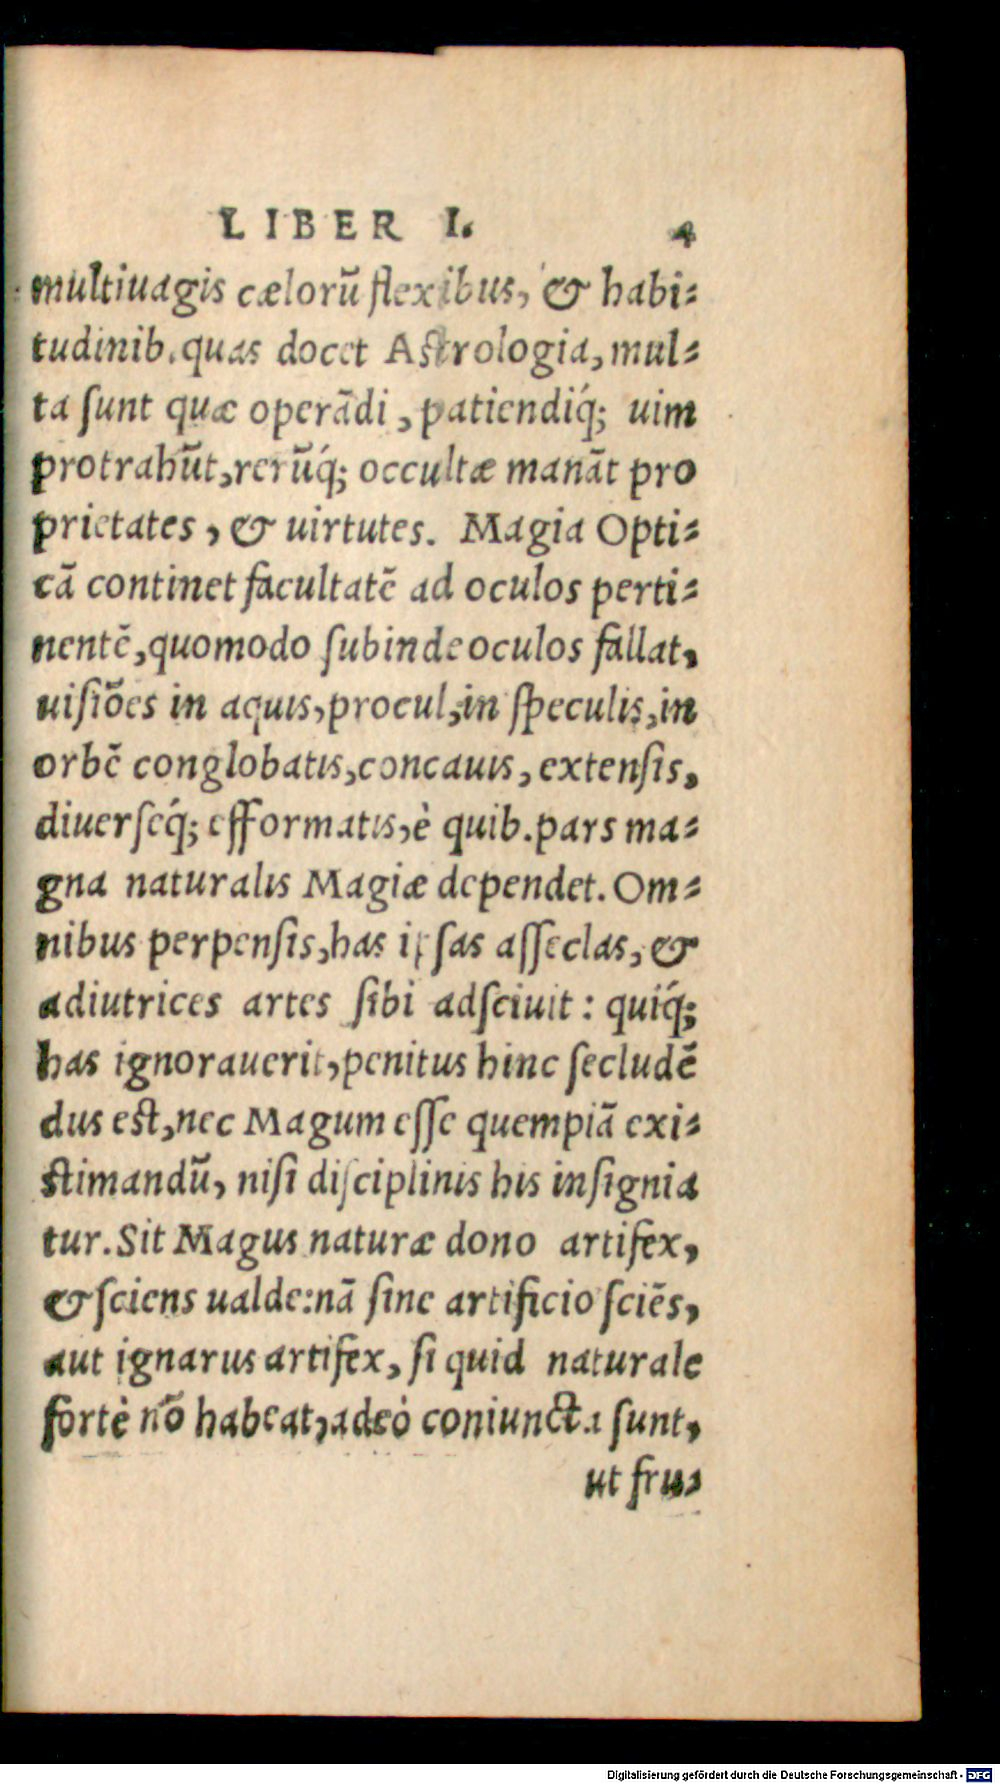 LIBER I. 4
multiuagis cælorũ flexibus, & habi-
tudinib. quas docet Astrologia, mul-
ta ſunt quæ operãdi, patiendiq́; uim
protrahũt, rerũq́; occultæ manãt pro
prietates, & uirtutes. Magia Opti-
cã continet facultatẽ ad oculos perti-
nentẽ, quomodo ſubinde oculos fallat,
uiſiões in aquis, procul, in ſpeculis, in
orbẽ conglobatis, concauis, extenſis,
diuerſeq́; efformatis, è quib. pars ma-
gna naturalis Magiæ dependet. Om-
nibus perpenſis, has ipſas aſſeclas, &
adiutrices artes ſibi adſciuit: quiq́;
has ignorauerit, penitus hinc ſecludẽ
dus est, nec Magum eſſe quempiã exi-
stimandũ, niſi diſciplinis his inſignia
tur. Sit Magus naturæ dono artifex,
& ſciens ualde: nã ſine artificio ſciẽs,
aut ignarus artifex, ſi quid naturale
fortè nõ habeat, adeò coniuncta ſunt,
ut fru-
Digitalisierung gefördert durch die Deutsche Forschungsgemeinschaft - DFG